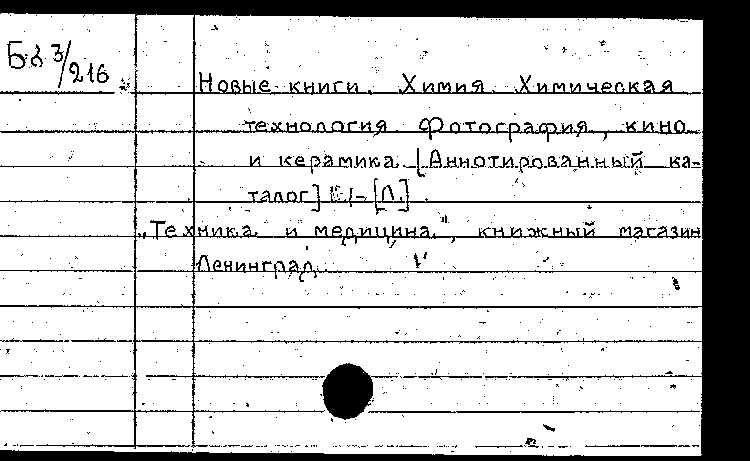 Бд 3/216
Новые книги. Химия. Химическая
технология Фотография, кино
и керамика. [Аннотированный ка-
талог] - [Л.]
„Техника и медицина", книжный магазин
Ленинград.